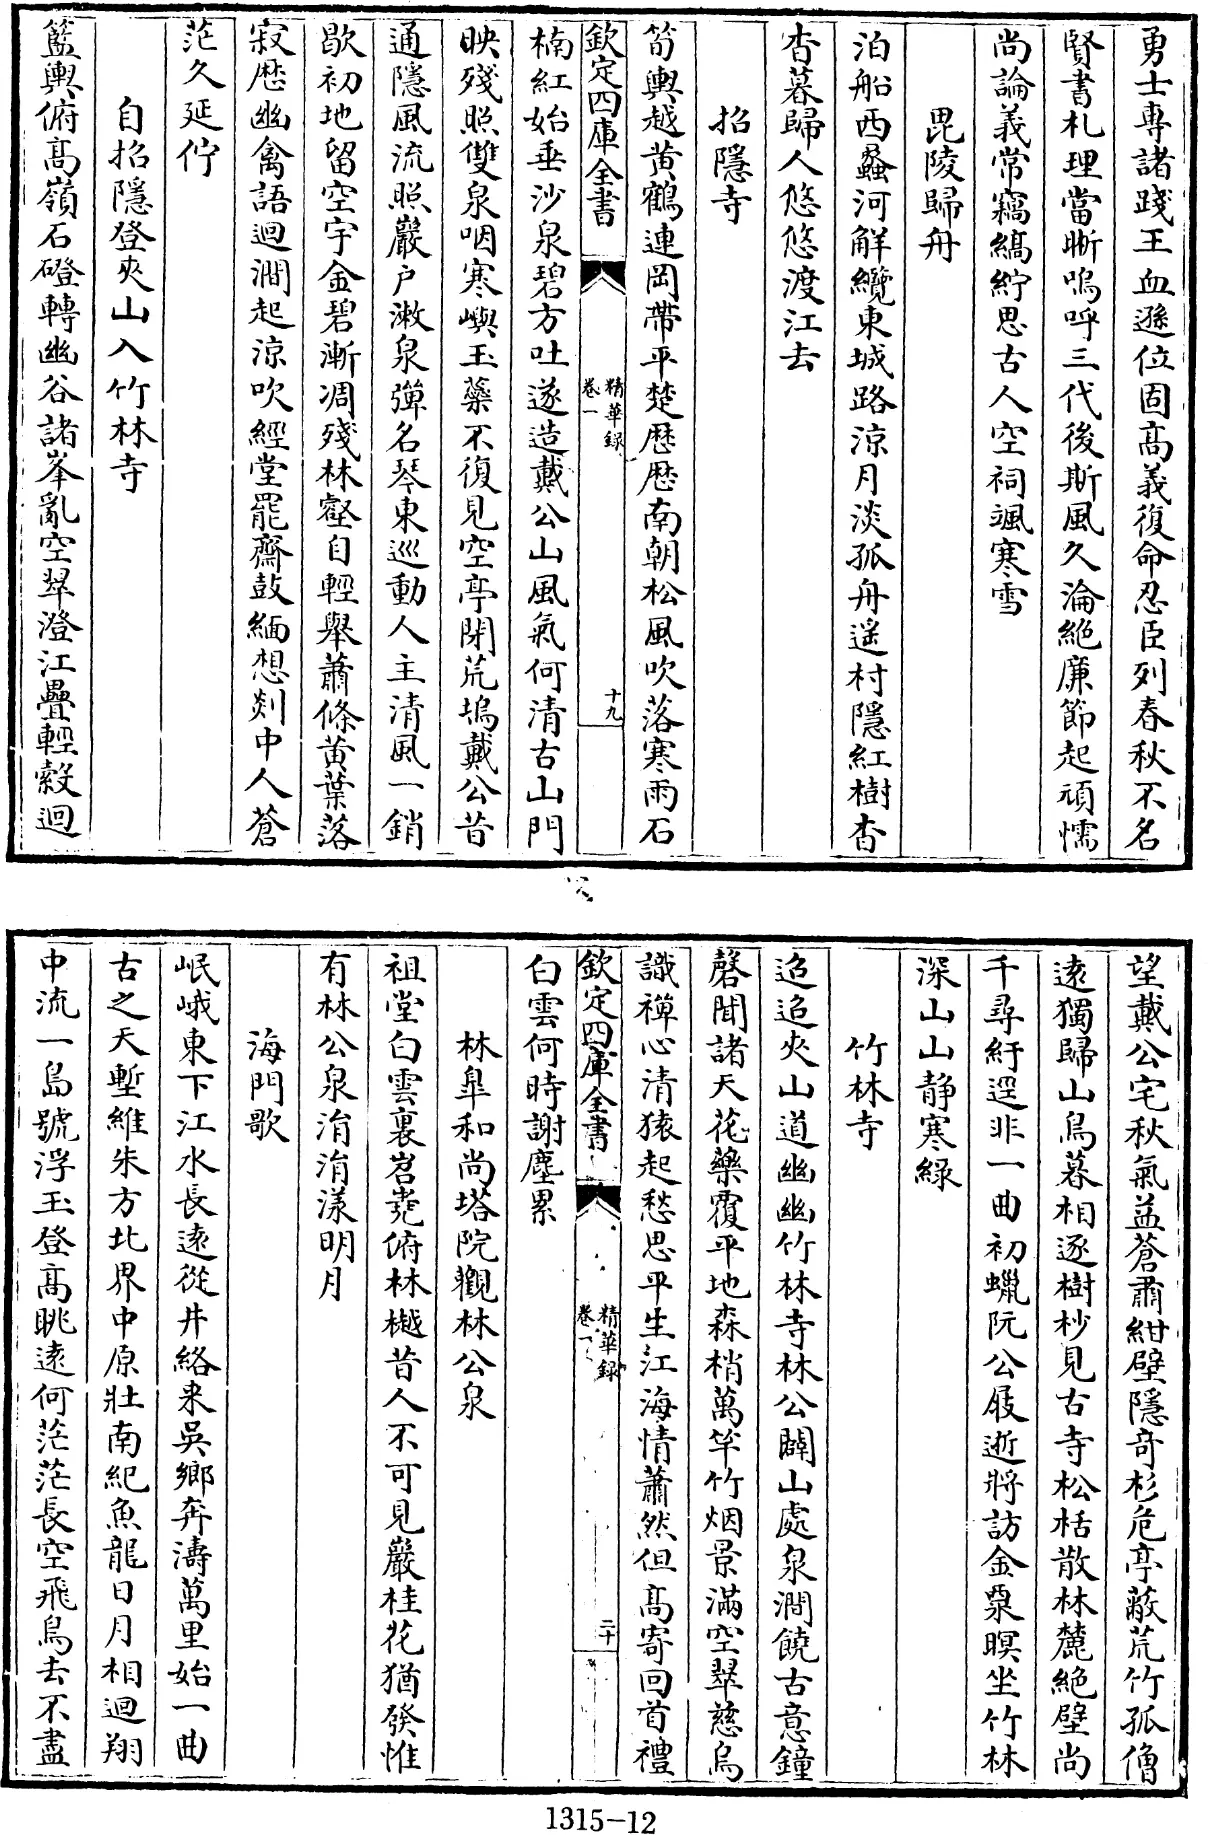 勇士專諸踐王血遜位固高義復命忍臣列春秋不名
賢書札理當晰嗚呼三代後斯風久淪絶廉節起頑懦
尚論義常竊縞紵思古人空祠颯寒雪
毘陵歸舟
泊船西蠡河解纜東城路涼月淡孤舟遥村隱紅樹杳
杳暮歸人悠悠渡江去
招隱寺
筍輿越黄鶴連岡帶平楚歴歴南朝松風吹落寒雨石
欽定四庫全書
精華録
卷一
十九
楠紅始垂沙泉碧方吐遂造戴公山風氣何清古山門
映殘照雙泉咽寒嶼玉蘂不復見空亭閉荒塢戴公昔
通隱風流照巖户漱泉彈名琴東巡動人主清風一銷
歇初地留空宇金碧漸凋殘林壑自輕舉蕭條黄葉落
寂歴幽禽語迴澗起涼吹經堂罷齋鼓緬想剡中人蒼
茫久延佇
自招隱登夾山入竹林寺
籃輿俯高嶺石磴轉幽谷諸峯亂空翠澄江疊輕縠迴
望戴公宅秋氣益蒼肅紺壁隱奇杉危亭蔽荒竹孤僧
遠獨歸山鳥暮相逐樹杪見古寺松栝散林麓絶壁尚
千尋紆逕非一曲初蠟阮公屐逝將訪金粟暝坐竹林
深山山静寒緑
竹林寺
迢迢夾山道幽幽竹林寺林公闢山處泉澗饒古意鐘
磬聞諸天花藥覆平地森梢萬竿竹烟景滿空翠慈烏
識禪心清猿起愁思平生江海情蕭然但高寄回首禮
欽定四庫全書
精華録
卷一
二十
白雲何時謝塵累
林臯和尚塔院觀林公泉
祖堂白雲裏岧嶤俯林樾昔人不可見巖桂花猶發惟
有林公泉涓涓漾明月
海門歌
岷峨東下江水長遠從井絡来吳鄉奔濤萬里始一曲
古之天塹維朱方北界中原壯南紀魚龍日月相迴翔
中流一島號浮玉登高眺遠何茫茫長空飛鳥去不盡
1315-12